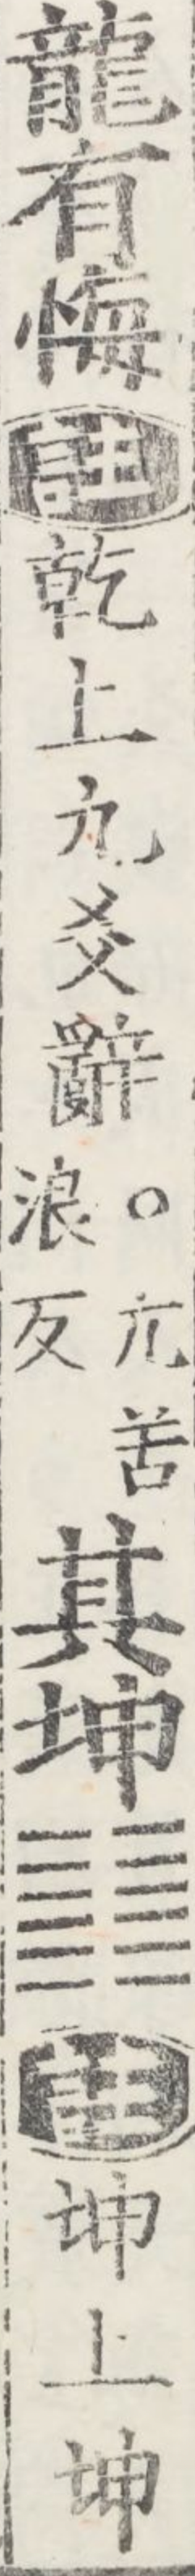 龍有悔註乾上九爻辭。亢苦浪反其坤䷁註坤上坤